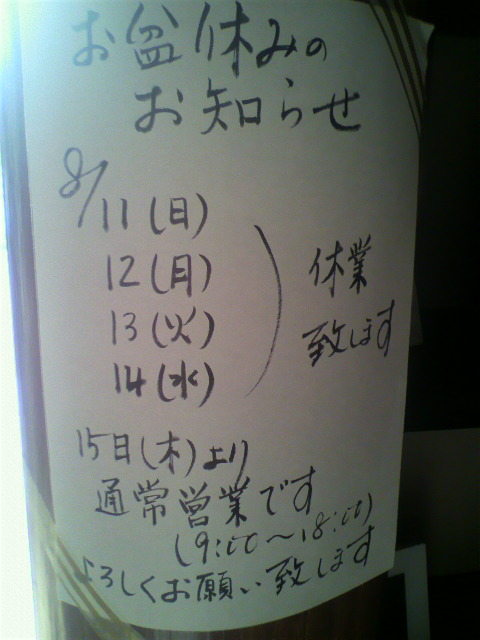 お盆休みの
お知らせ
8/11(日)
12(月)
13(火)
14(水)
休業
致します
15日(木)より
通常営業です
(9:00〜18:00)
よろしくお願い致します